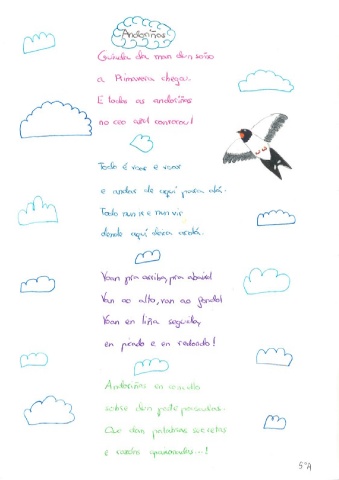 Andoriñas
Guiada da man dun soño
a Primavera chega.
E todas as andoriñas
no ceo azul
Todo é voar e voar
e andar de aquí para alá.
Todo nun ir e nun vir
dende aquí
Voan pra arriba, pra abaixo!
Van ao alto, van ao fondo!
Voan en liña seguida,
en picado e en redondo!
Andoriñas en
sobre dun
Que dan palabras secretas
e razóns apaixonadas...!
5ºA